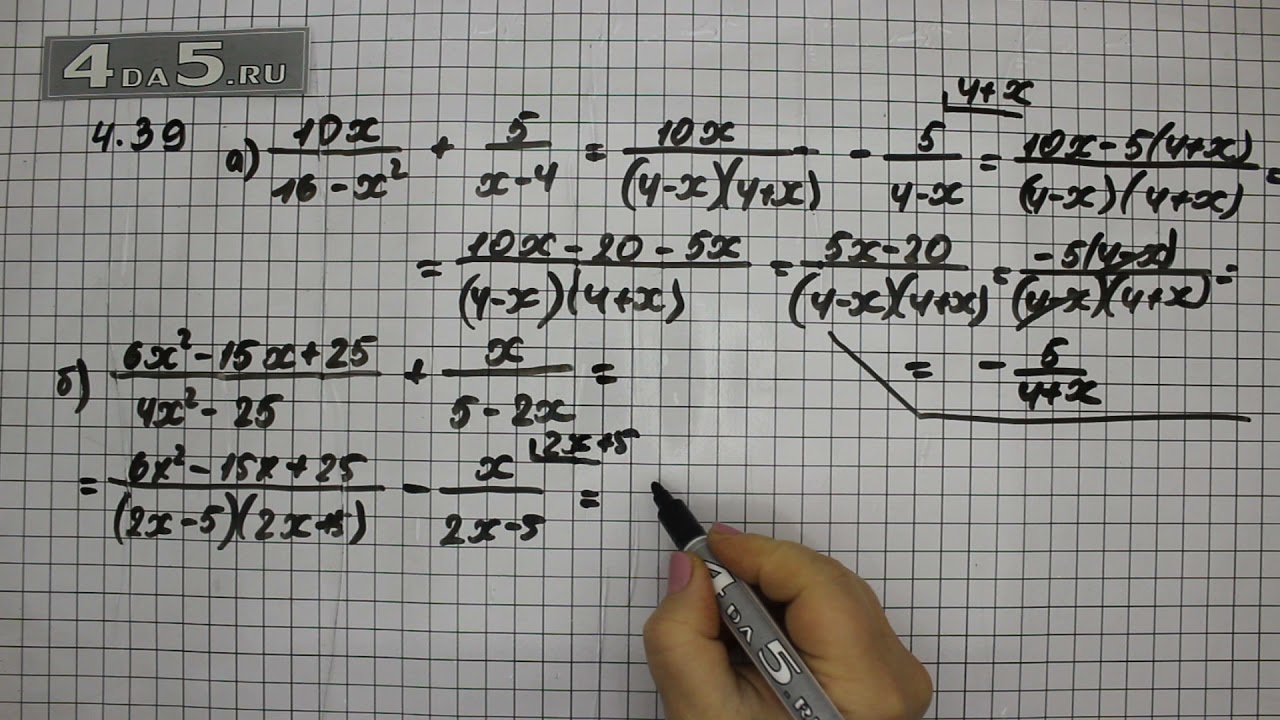 4DA5.RU
4.39 а) 10x/(16-x²) + 5/(x-4) = 10x/((4-x)(4+x)) - 5/(4-x) ⌊4+x = (10x-5(4+x))/((4-x)(4+x)) =
= (10x-20-5x)/((4-x)(4+x)) = (5x-20)/((4-x)(4+x)) = (-5(4-x))/((4-x)(4+x)) =
= - 5/(4+x)
б) (6x²-15x+25)/(4x²-25) + x/(5-2x) =
= (6x²-15x+25)/((2x-5)(2x+5)) - x/(2x-5) ⌊2x+5 =
4DA5.RU